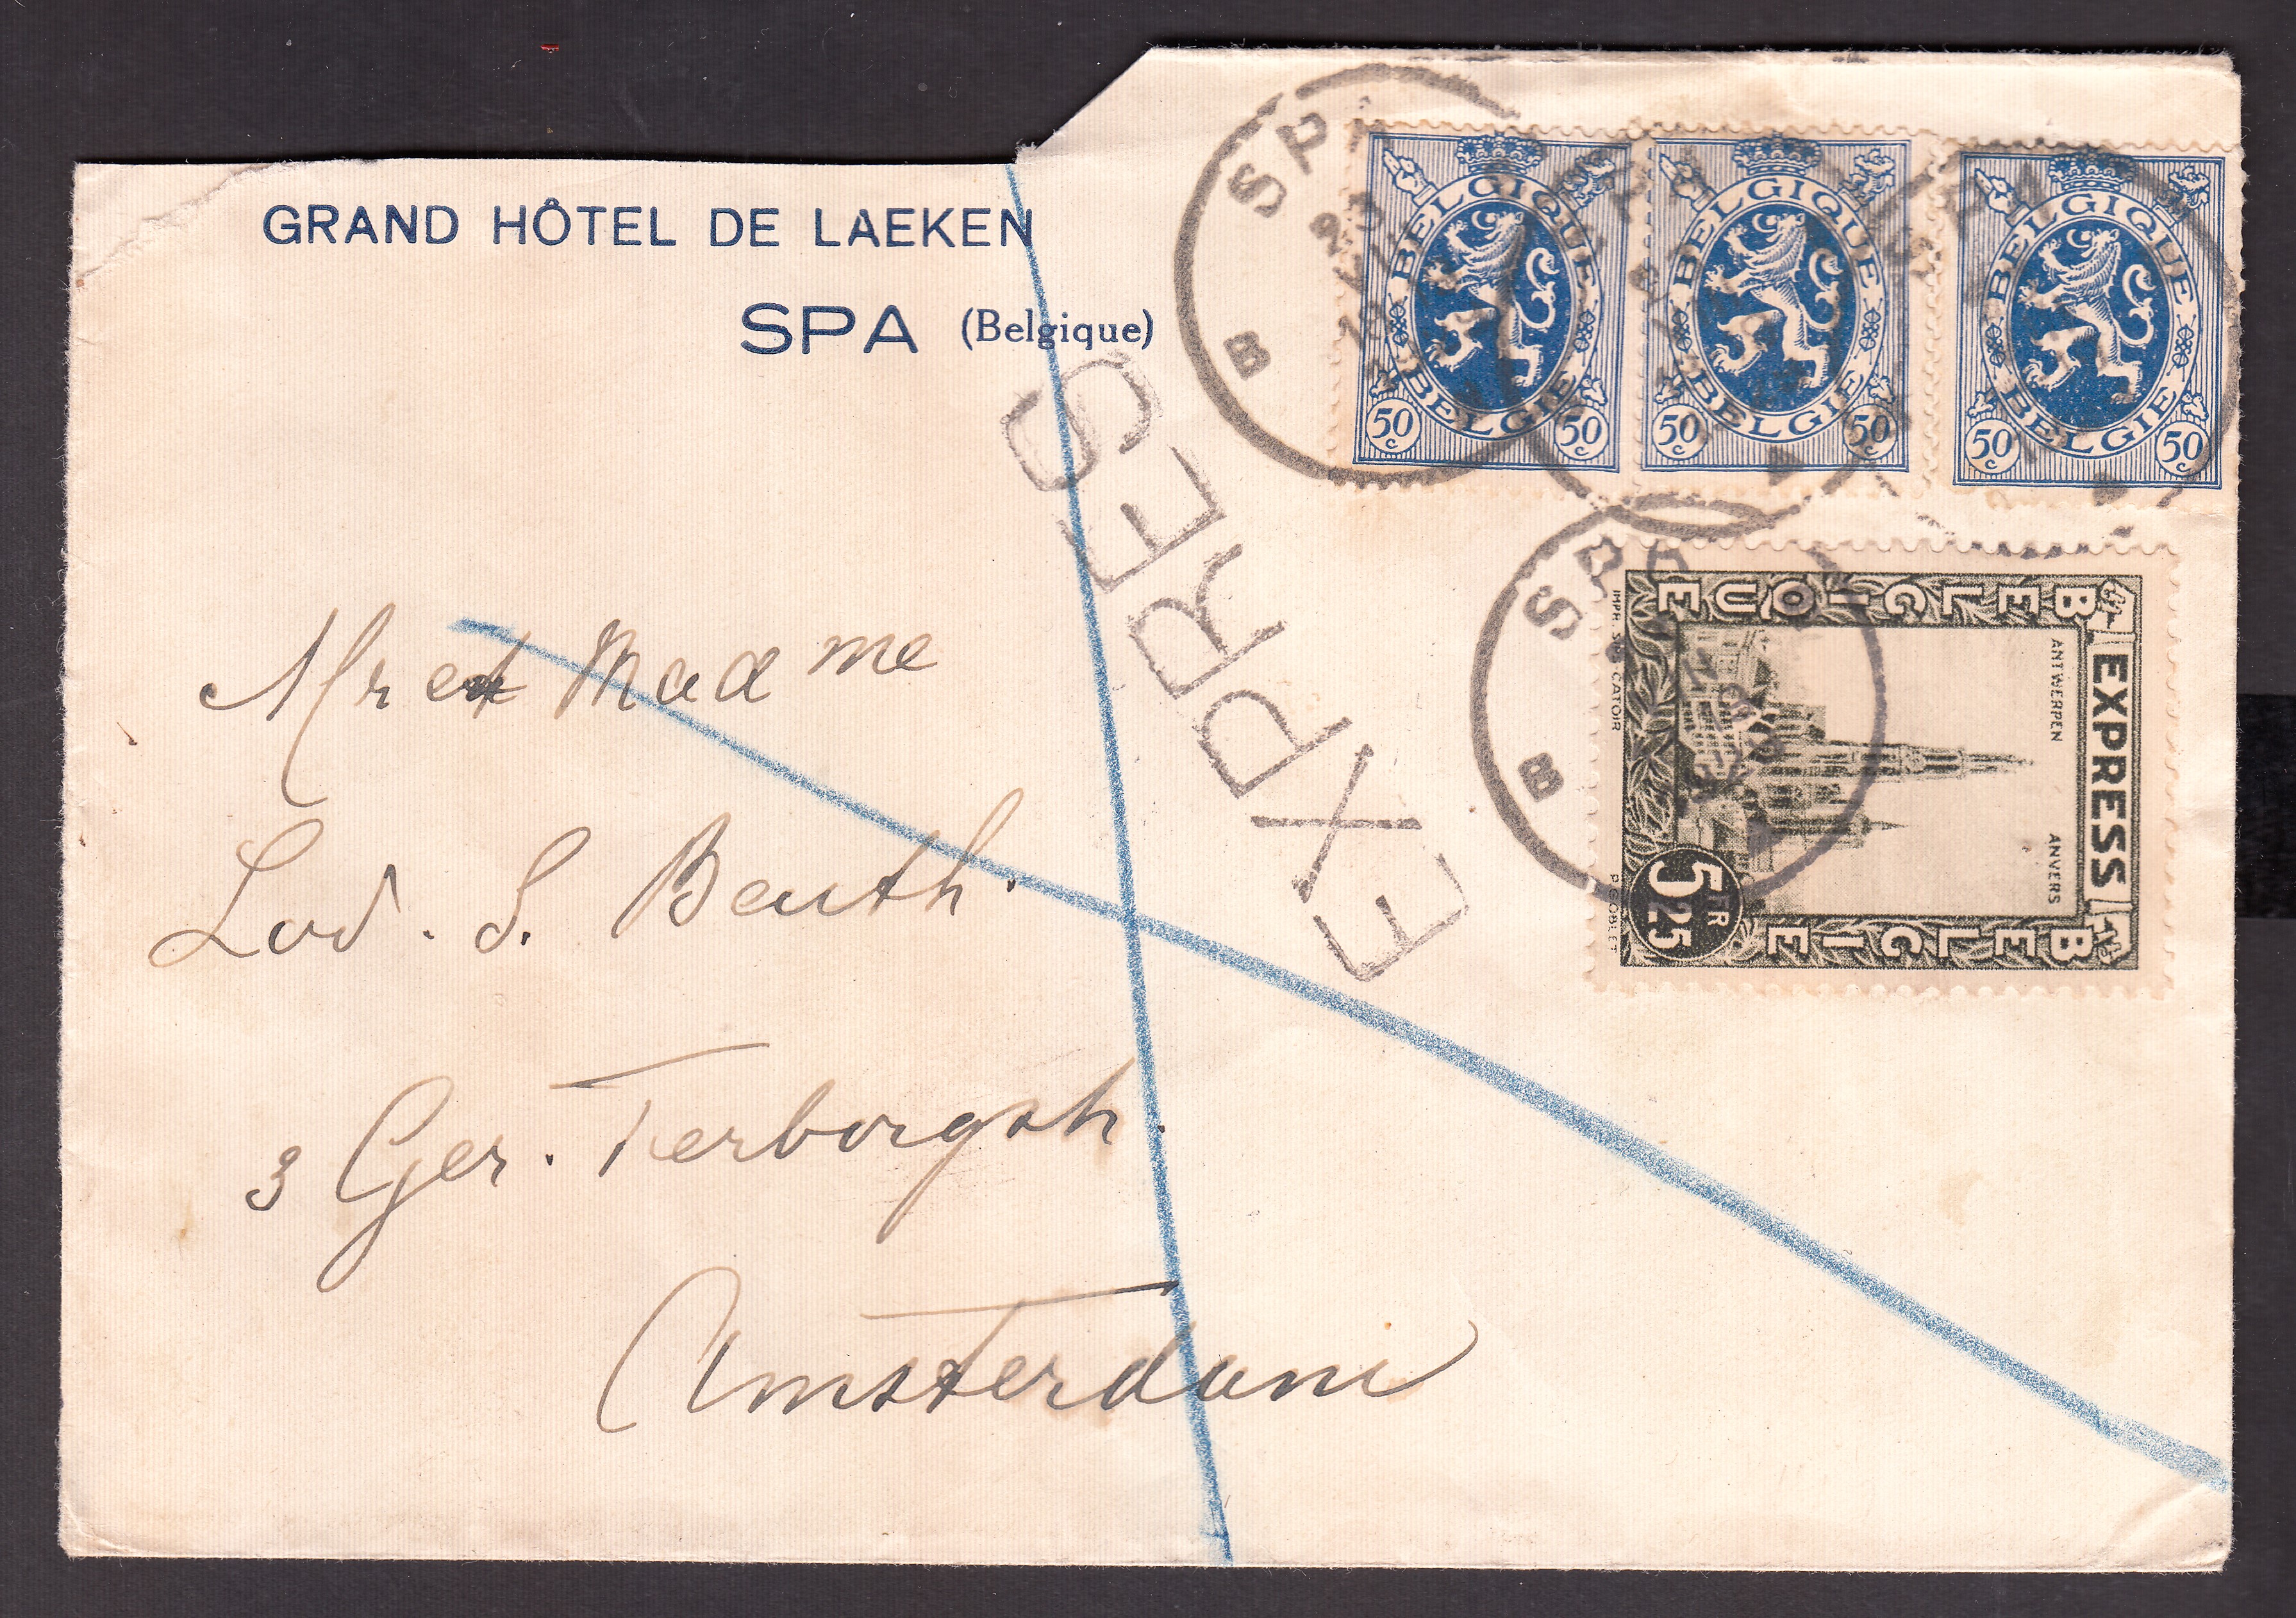 GRAND HÔTEL DE LAEKEN
SPA (Belgique)
SPA
B
BELGIQUE
BELGIË
50 c 50 c
BELGIQUE
BELGIË
50 c 50 c
BELGIQUE
BELGIË
50 c 50 c
EXPRES
SPA
B
EXPRESS
BELGIQUE
BELGIE
ANTWERPEN ANVERS
5 FR 25
Mr et Mad me
Lod. S. Beuth.
3 Ger. Terborgstr.
Amsterdam